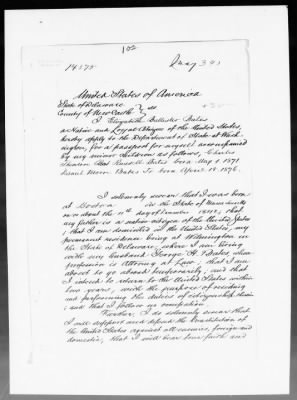 102
14575 May 391
United States of America
State of Delaware
County of New Castle } ss
I Elizabeth Ballister Bates
a Native and Loyal Citizen of the United States,
hereby apply to the Department of State at Wash-
ington, for a passport for myself accompanied
by my minor children as follows, Charles
Theodore Russell Bates born Aug 4 1871
Daniel Moore Bates Jr born April 14 1876.
I solemnly swear that I was born
at Boston in the State of Massachusetts
on or about the 11th day of 1842, that
my father is a native citizen of the United States,
that I am domiciled in the United States, my
permanent residence being at Wilmington in
the State of Delaware, where I am living
with my husband George H. Bates whose
profession is Attorney at Law; that I am
about to go abroad temporarily, and that
I intend to return to the United States within
two years, with the purpose of residing
and performing the duties of citizenship therein
; and that I follow no occupation
Further, I do solemnly swear that
I will support and defend the Constitution of
the United States against all enemies, foreign and
domestic, that I will bear true faith and